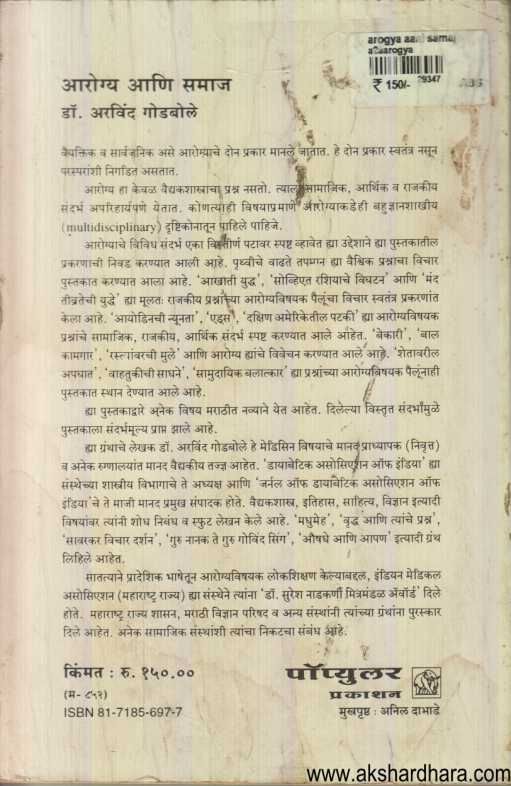 arogya aani samaj
aaarogya
₹ 150/-
29347
ABS
आरोग्य आणि समाज
डॉ. अरविंद गोडबोले
वैयक्तिक व सार्वजनिक असे आरोग्याचे दोन प्रकार मानले जातात. हे दोन प्रकार स्वतंत्र नसून
परस्परांशी निगडित असतात.
आरोग्य हा केवळ वैद्यकशास्त्राचा प्रश्न नसतो. त्याला सामाजिक, आर्थिक व राजकीय
संदर्भ अपरिहार्यपणे येतात. कोणत्याही विषयाप्रमाणे आरोग्याकडेही बहुज्ञानशाखीय
(multidisciplinary) दृष्टिकोनातून पाहिले पाहिजे.
आरोग्याचे विविध संदर्भ एका विस्तीर्ण पटावर स्पष्ट व्हावेत ह्या उद्देशाने ह्या पुस्तकातील
प्रकरणाची निवड करण्यात आली आहे. पृथ्वीचे वाढते तपमान ह्या वैश्विक प्रश्नाचा विचार
पुस्तकात करण्यात आला आहे. 'आखाती युद्ध', 'सोव्हिएत रशियाचे विघटन' आणि 'मंद
तीव्रतेची युद्धे' ह्या मूलतः राजकीय प्रश्नांच्या आरोग्यविषयक पैलूंचा विचार स्वतंत्र प्रकरणांत
केला आहे. 'आयोडिनची न्यूनता', 'एड्स', 'दक्षिण अमेरिकेतील पटकी' ह्या आरोग्यविषयक
प्रश्नांचे सामाजिक, राजकीय, आर्थिक संदर्भ स्पष्ट करण्यात आले आहेत. 'बेकारी', 'बाल
कामगार', 'रस्त्यांवरची मुले' आणि आरोग्य ह्यांचे विवेचन करण्यात आले आहे. 'शेतावरील
अपघात', 'वाहतुकीची साधने', 'सामुदायिक बलात्कार' ह्या प्रश्नांच्या आरोग्यविषयक पैलूंनाही
पुस्तकात स्थान देण्यात आले आहे.
ह्या पुस्तकाद्वारे अनेक विषय मराठीत नव्याने येत आहेत. दिलेल्या विस्तृत संदर्भांमुळे
पुस्तकाला संदर्भमूल्य प्राप्त झाले आहे.
ह्या ग्रंथाचे लेखक डॉ. अरविंद गोडबोले हे मेडिसिन विषयाचे मानद प्राध्यापक (निवृत्त)
व अनेक रुग्णालयांत मानद वैद्यकीय तज्ज्ञ आहेत. 'डायाबेटिक असोसिएशन ऑफ इंडिया' ह्या
संस्थेच्या शास्त्रीय विभागाचे ते अध्यक्ष आणि 'जर्नल ऑफ डायाबेटिक असोसिएशन ऑफ
इंडिया'चे ते माजी मानद प्रमुख संपादक होते. वैद्यकशास्त्र, इतिहास, साहित्य, विज्ञान इत्यादी
विषयांवर त्यांनी शोध निबंध व स्फुट लेखन केले आहे. 'मधुमेह', 'वृद्ध आणि त्यांचे प्रश्न',
'सावरकर विचार दर्शन', 'गुरु नानक ते गुरु गोविंद सिंग', 'औषधे आणि आपण' इत्यादी ग्रंथ
लिहिले आहेत.
सातत्याने प्रादेशिक भाषेतून आरोग्यविषयक लोकशिक्षण केल्याबद्दल, इंडियन मेडिकल
असोसिएशन (महाराष्ट्र राज्य) ह्या संस्थेने त्यांना 'डॉ. सुरेश नाडकर्णी मित्रमंडळ ॲवॉर्ड' दिले
होते. महाराष्ट्र राज्य शासन, मराठी विज्ञान परिषद व अन्य संस्थांनी त्यांच्या ग्रंथांना पुरस्कार
दिले आहेत. अनेक सामाजिक संस्थांशी त्यांचा निकटचा संबंध आहे.
किंमत : रु. १५०.००
(म- ८५२)
ISBN 81-7185-697-7
पॉप्युलर
प्रकाशन
मुखपृष्ठ : अनिल दाभाडे
www.akshardhara.com